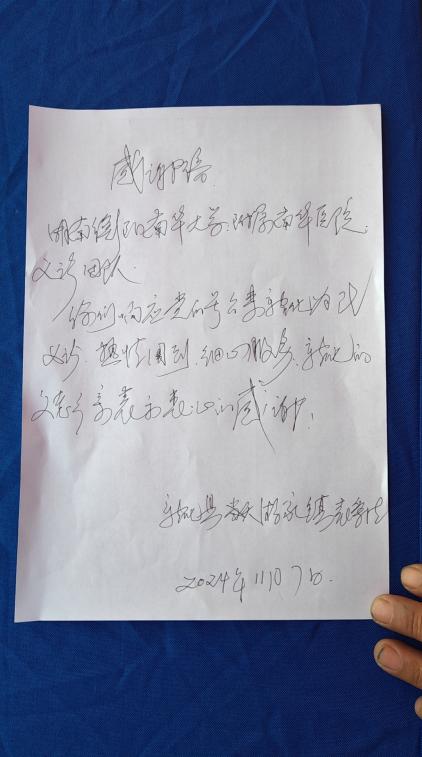 感谢信
湖南衡阳南华大学附属南华医院
义诊团队
你们响应党的号召来新化为民
义诊，热情周到，细心服务，新化的
父老乡亲表示衷心的感谢！
新化县
2024年11月7日.